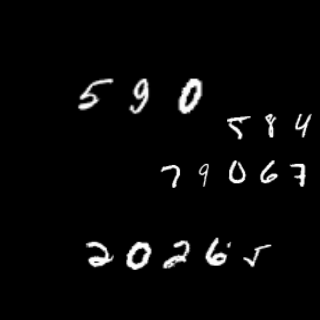 590
584
79067
20265